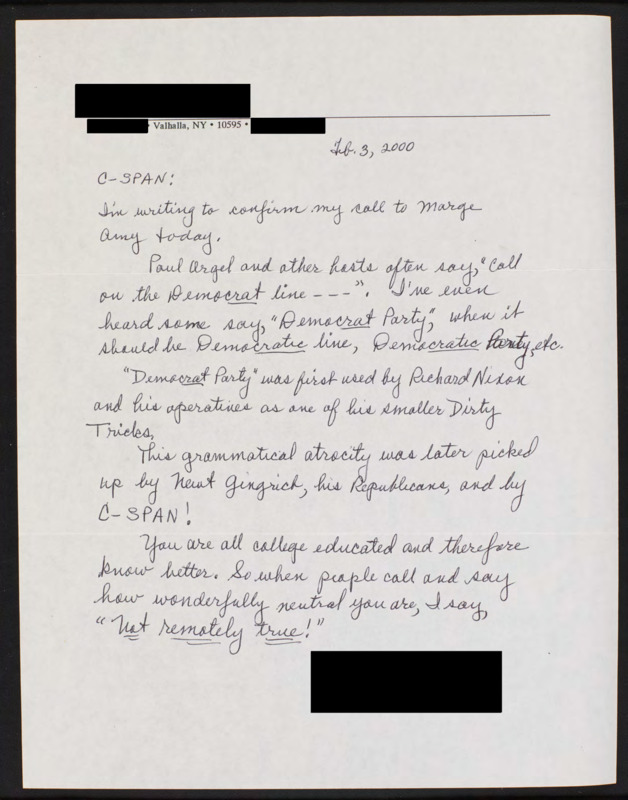 • Valhalla, NY • 10595 •
Feb. 3, 2000
C-SPAN:
I'm writing to confirm my call to Marge
Amy today.
Paul Orgel and other hosts often say, "Call
on the Democrat line - - - ". I've even
heard some say, "Democrat Party", when it
should be Democratic line, Democratic Party, etc.
"Democrat Party" was first used by Richard Nixon
and his operatives as one of his smaller Dirty
Tricks.
This grammatical atrocity was later picked
up by Newt Gingrich, his Republicans, and by
C-SPAN!
You are all college educated and therefore
know better. So when people call and say
how wonderfully neutral you are, I say,
"Not remotely true!"